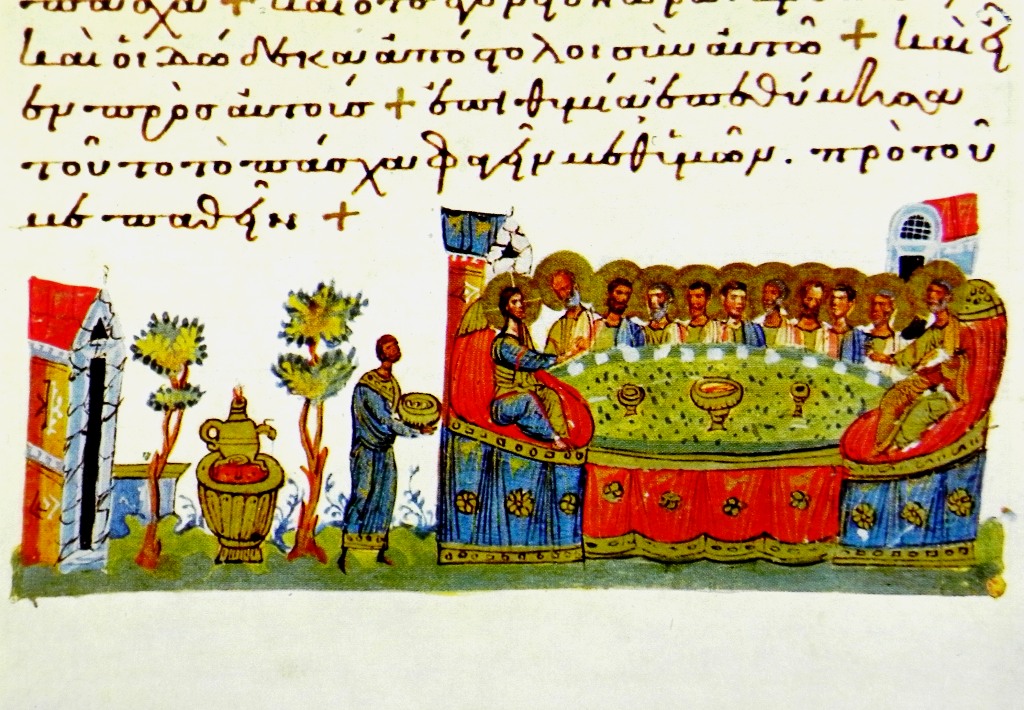 πάσχα + καὶ ὅτε
καὶ οἱ δώδεκα ἀπόστολοι σὺν αὐτῶ + καὶ εἶ
πεν πρὸσ αὐτούσ + ἐπιθυμία ἐπεθύμησα
τοῦτο τὸ πάσχα φαγεῖν μεθ ὑμῶν. πρὸ τοῦ
με παθεῖν +